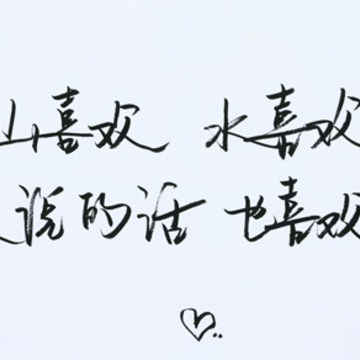 山喜欢 水喜欢
说的话 也喜欢